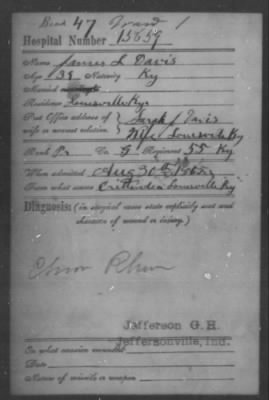 Bed 47 Ward 1
Hospital Number 15859
Name James L Davis
Age 38 Nativity Ky
Married
Residence Louisville Ky
Post Office address of
wife or nearest relation Sarah J Davis
Wife Louisville Ky
Rank Pr Co G Regiment 55 Ky
When admitted Aug 30th 1865
From what source Crittenden Louisville Ky
Diagnosis: (in surgical cases state explicitly seat and
character of wound or injury.)
Chron Rheum
Jefferson G. H.
Jeffersonville, Ind.
On what occasion wounded
Date
Nature of missile or weapon